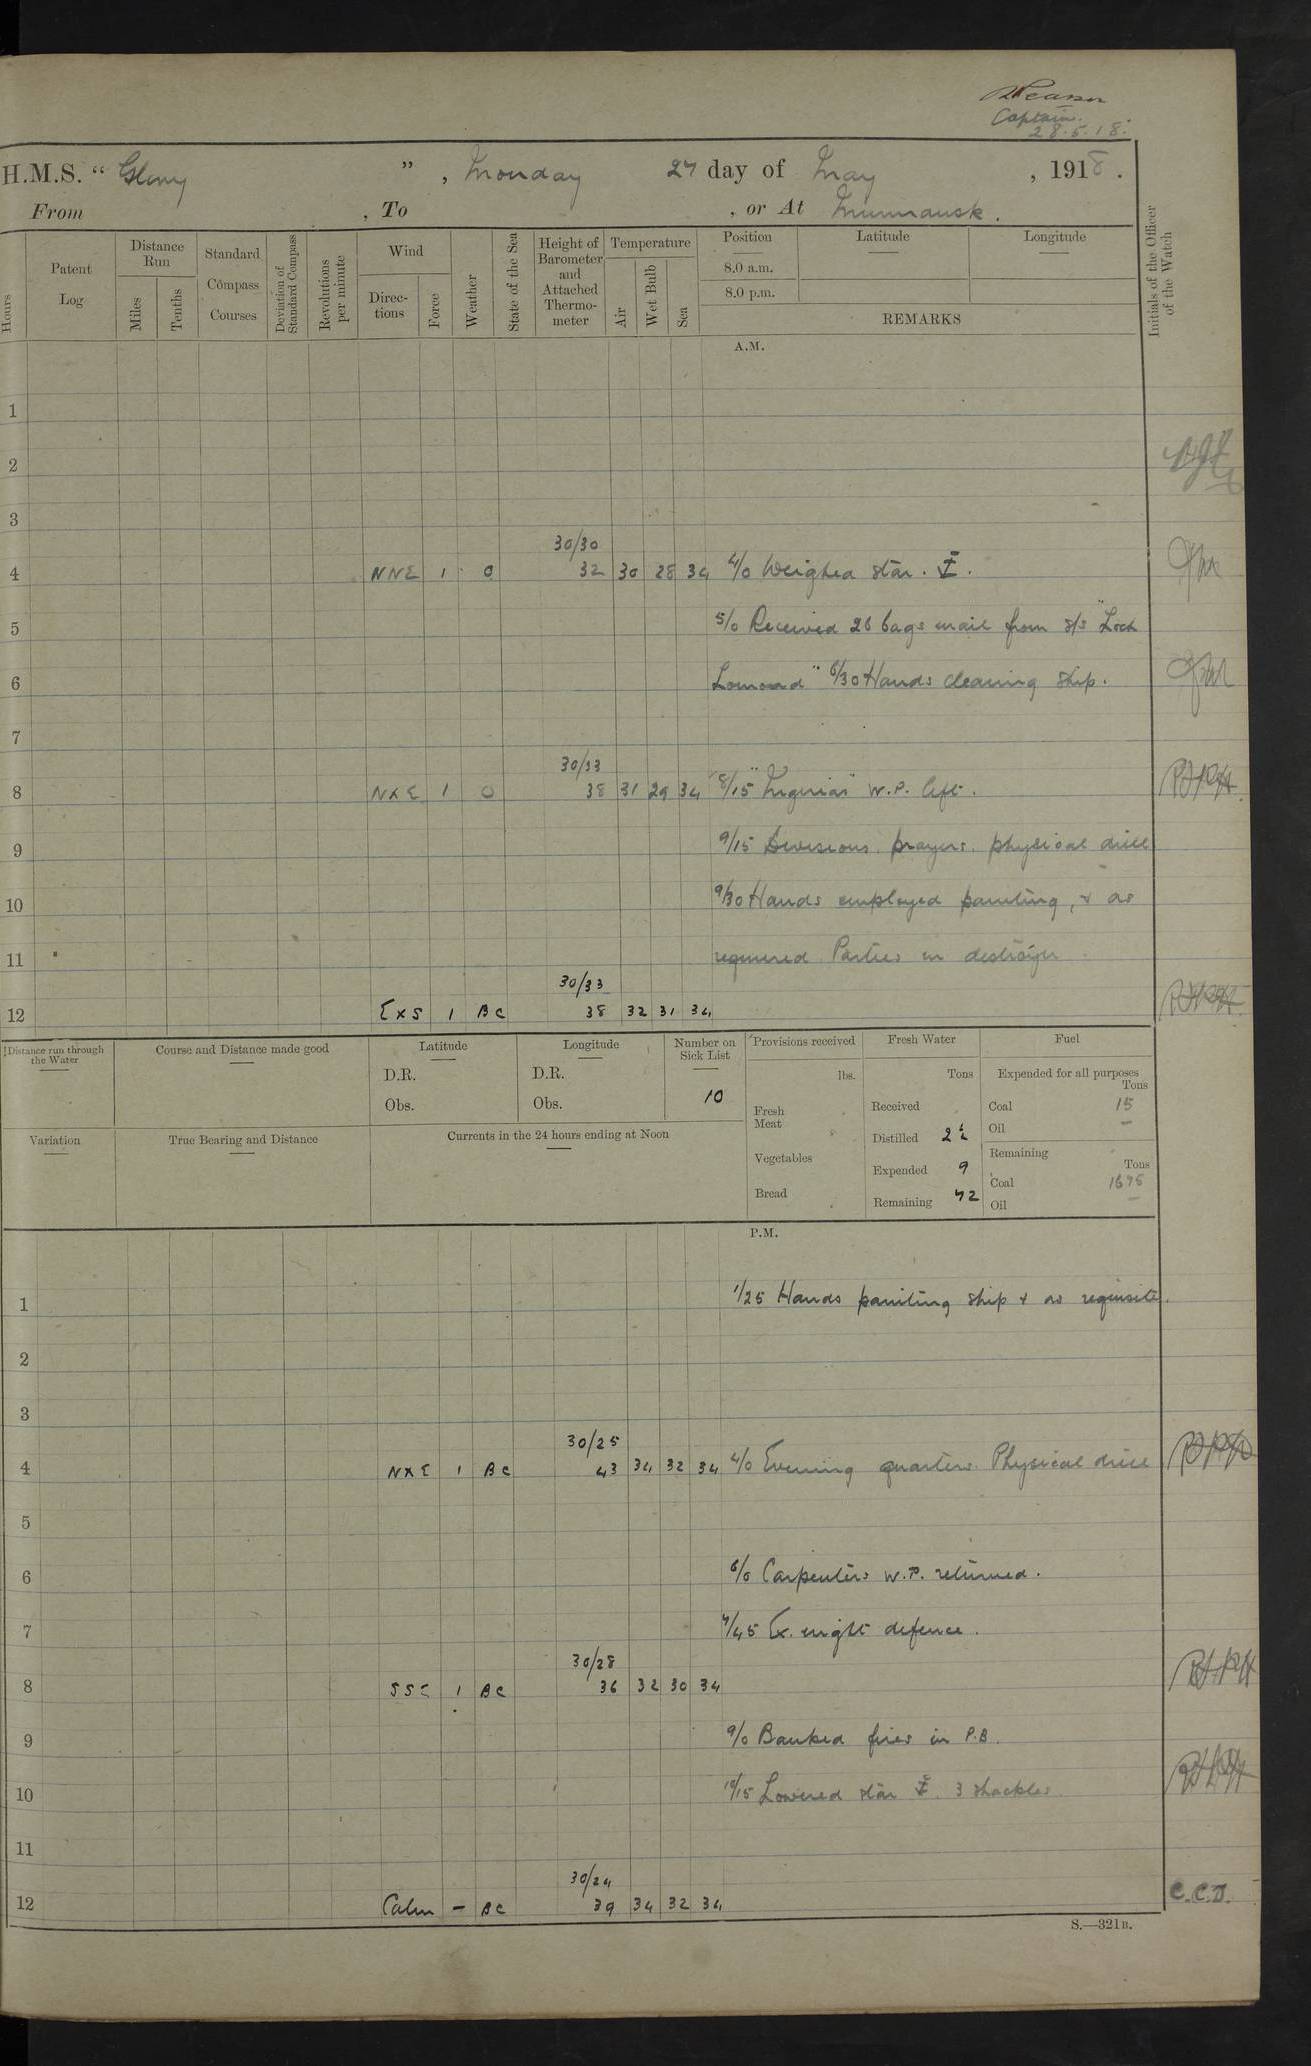 Captain.
28.5.18.
H.M.S. " Glory " , Monday 27 day of May , 1918 .
From , To , or At Murmansk .
Hours
Patent Log
Distance Run
Miles
Tenths
Standard Compass Courses
Deviation of Standard Compass
Revolutions per minute
Wind
Directions
Force
Weather
State of the Sea
Height of Barometer and Attached Thermometer
Temperature
Air
Wet Bulb
Sea
Position
8.0 a.m.
8.0 p.m.
Latitude
Longitude
REMARKS
Initials of the Officer of the Watch
A.M.
1
2
3
30/30
4 NNE 1 O 32 30 28 34 4/0 Weighed star. .
5 5/0 Received 26 bags mail from s/s "Loch
6 Lomond" 6/30 Hands cleaning ship.
7
30/33
8 NXE 1 O 38 31 29 34 8/15 W.P. left.
9 9/15 Divisions. prayers. physical drill
10 9/30 Hands employed painting, & as
11 required Parties in destroyer
30/33
12 EXS 1 BC 38 32 31 34
Distance run through the Water
Course and Distance made good
Latitude
D.R.
Obs.
Longitude
D.R.
Obs.
Number on Sick List
10
Provisions received
lbs.
Fresh Meat
Vegetables
Bread
Fresh Water
Tons
Received
Distilled 2
Expended 9
Remaining 72
Fuel
Expended for all purposes
Tons
Coal 15
Oil —
Remaining
Tons
Coal 1675
Oil —
Variation
True Bearing and Distance
Currents in the 24 hours ending at Noon
P.M.
1 1/25 Hands painting ship & as requisite.
2
3
30/25
4 NXE 1 BC 43 34 32 34 4/0 Evening quarters. Physical drill
5
6 6/0 Carpenters W.P. returned.
7 7/45 Ex. night defence.
30/28
8 SSE 1 BC 36 32 30 34
9 9/0 Banked fires in P.B.
10 10/15 Lowered star 3 shackles
11
30/24
12 Calm – BC 39 34 32 34 C.C.D.
S.—321B.